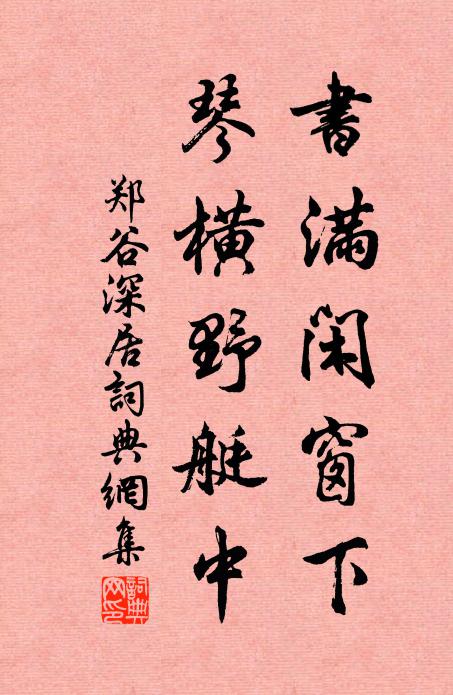 書滿閑窗下
琴橫野艇中
郑谷深居詞典網集
詞典网印